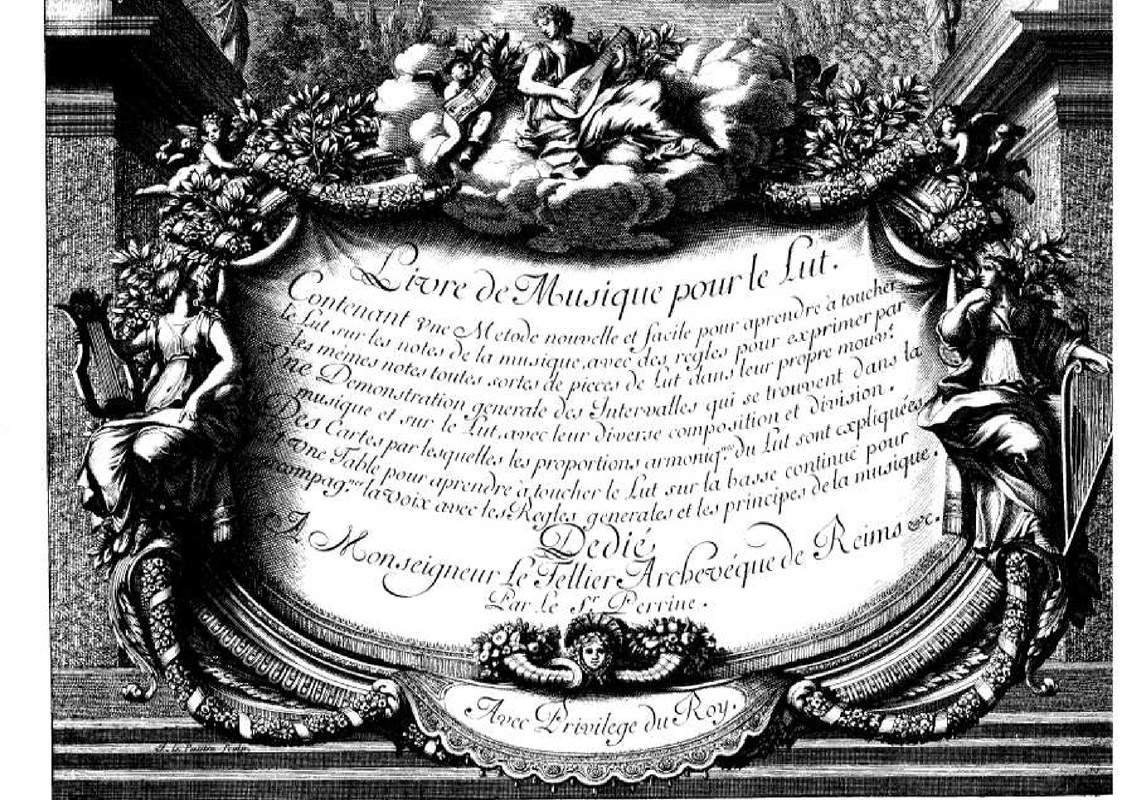 Livre de Musique pour le Lut.
Contenant vne Metode nouvelle et facile pour aprendre à toucher
le Lut sur les notes de la musique, avec des regles pour exprimer par
les mêmes notes toutes sortes de pieces de Lut dans leur propre mouv.t
Une Demonstration generale des Intervalles qui se trouvent dans la
musique et sur le Lut, avec leur diverse composition et division.
Des Cartes par lesquelles les proportions armoniq.es du Lut sont expliquées
Et vne Table pour aprendre à toucher le Lut sur la basse continuë pour
accompag.ner la voix avec les Regles generales et les principes de la musique.
Dedié
A Monseigneur Le Tellier Archevêque de Reims &c.
Par le Sr. Perrine.
Avec Privilege du Roy.
le Pautre Sculp.